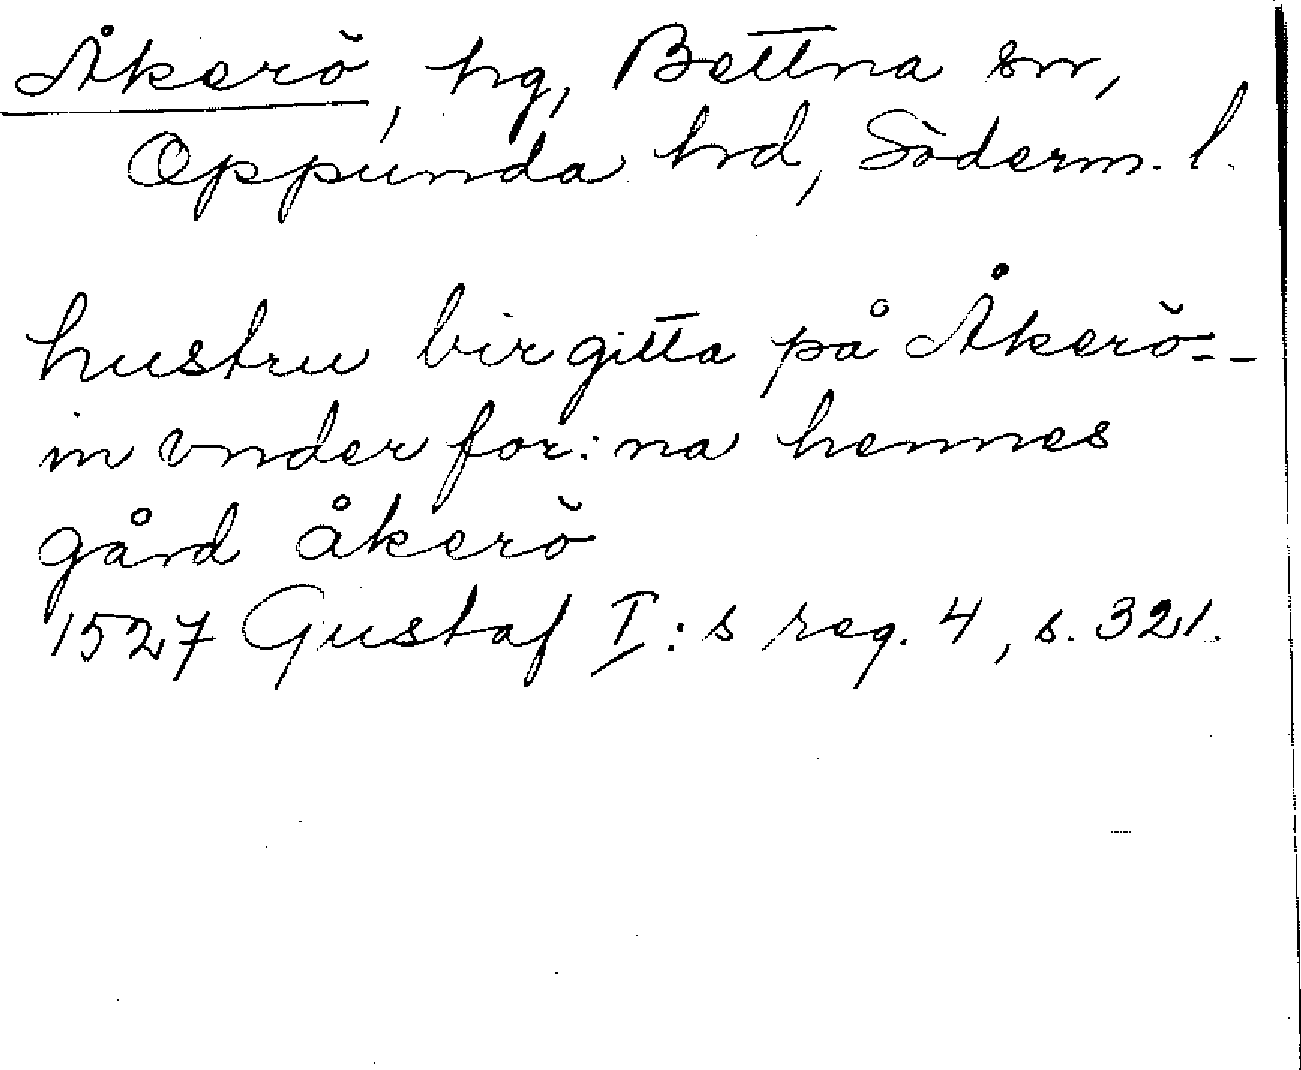 Åkerö, hg, Bettna sn,
Oppunda hd, Söderm. l.
hustru birgitta på Åkerö - -
in vnder for:na hennes
gård åkerö
1527 Gustaf I:s reg. 4, s. 321.